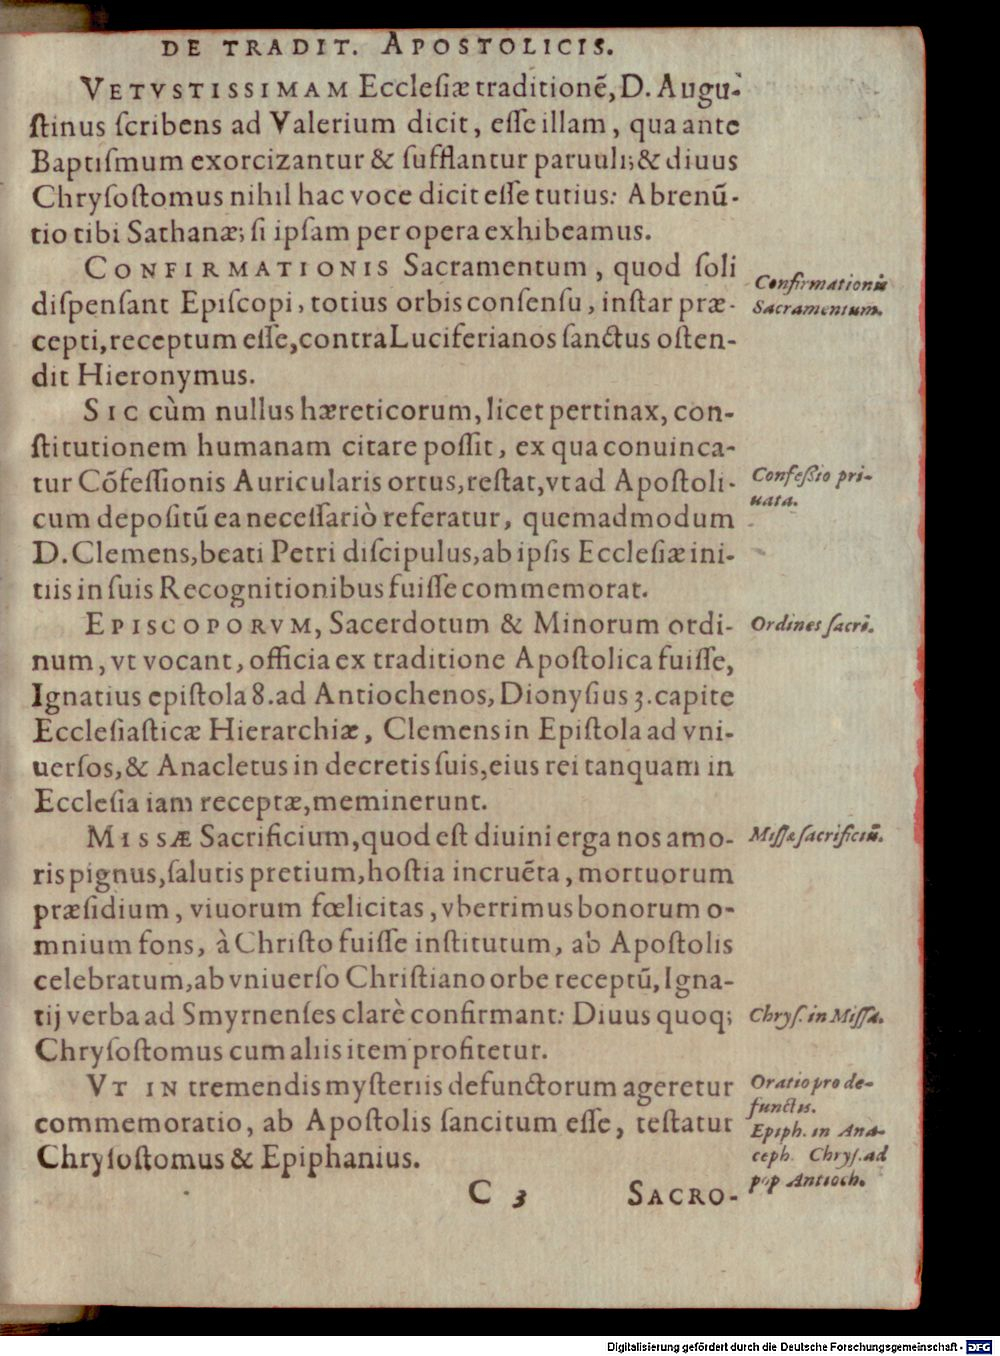 DE TRADIT. APOSTOLICIS.
VETVSTISSIMAM Ecclesiæ traditionē, D. Augu-
ſtinus ſcribens ad Valerium dicit, eſſe illam, qua ante
Baptiſmum exorcizantur & ſufflantur paruuli; & diuus
Chryſoſtomus nihil hac voce dicit eſſe tutius: Abrenū-
tio tibi Sathanæ; ſi ipſam per opera exhibeamus.
CONFIRMATIONIS Sacramentum, quod ſoli
diſpenſant Epiſcopi, totius orbis conſenſu, inſtar præ-
cepti, receptum eſſe, contra Luciferianos ſanctus oſten-
dit Hieronymus.
Confirmationis
Sacramentum.
SIC cùm nullus hæreticorum, licet pertinax, con-
ſtitutionem humanam citare poſſit, ex qua conuinca-
tur Cōfeſſionis Auricularis ortus, reſtat, vt ad Apoſtoli-
cum depoſitū ea neceſſariò referatur, quemadmodum
D. Clemens, beati Petri diſcipulus, ab ipſis Eccleſiæ ini-
tiis in ſuis Recognitionibus fuiſſe commemorat.
Confeßio pri-
uata.
EPISCOPORVM, Sacerdotum & Minorum ordi-
num, vt vocant, officia ex traditione Apoſtolica fuiſſe,
Ignatius epiſtola 8. ad Antiochenos, Dionyſius 3. capite
Eccleſiaſticæ Hierarchiæ, Clemens in Epiſtola ad vni-
uerſos, & Anacletus in decretis ſuis, eius rei tanquam in
Eccleſia iam receptæ, meminerunt.
Ordines ſacri.
MISSÆ Sacrificium, quod eſt diuini erga nos amo-
ris pignus, ſalutis pretium, hoſtia incruēta, mortuorum
præſidium, viuorum fœlicitas, vberrimus bonorum o-
mnium fons, à Chriſto fuiſſe inſtitutum, ab Apoſtolis
celebratum, ab vniuerſo Chriſtiano orbe receptū, Igna-
tij verba ad Smyrnenſes clarè confirmant: Diuus quoq;
Chryſoſtomus cum aliis item profitetur.
Miſſæ ſacrificiū.
Chryſ. in Miſſa.
VT IN tremendis myſteriis defunctorum ageretur
commemoratio, ab Apoſtolis ſancitum eſſe, teſtatur
Chryſoſtomus & Epiphanius.
Oratio pro de-
functis.
Epiph. in Ana-
ceph. Chryſ. ad
pop Antioch.
C 3 SACRO-
Digitalisierung gefördert durch die Deutsche Forschungsgemeinschaft - DFG